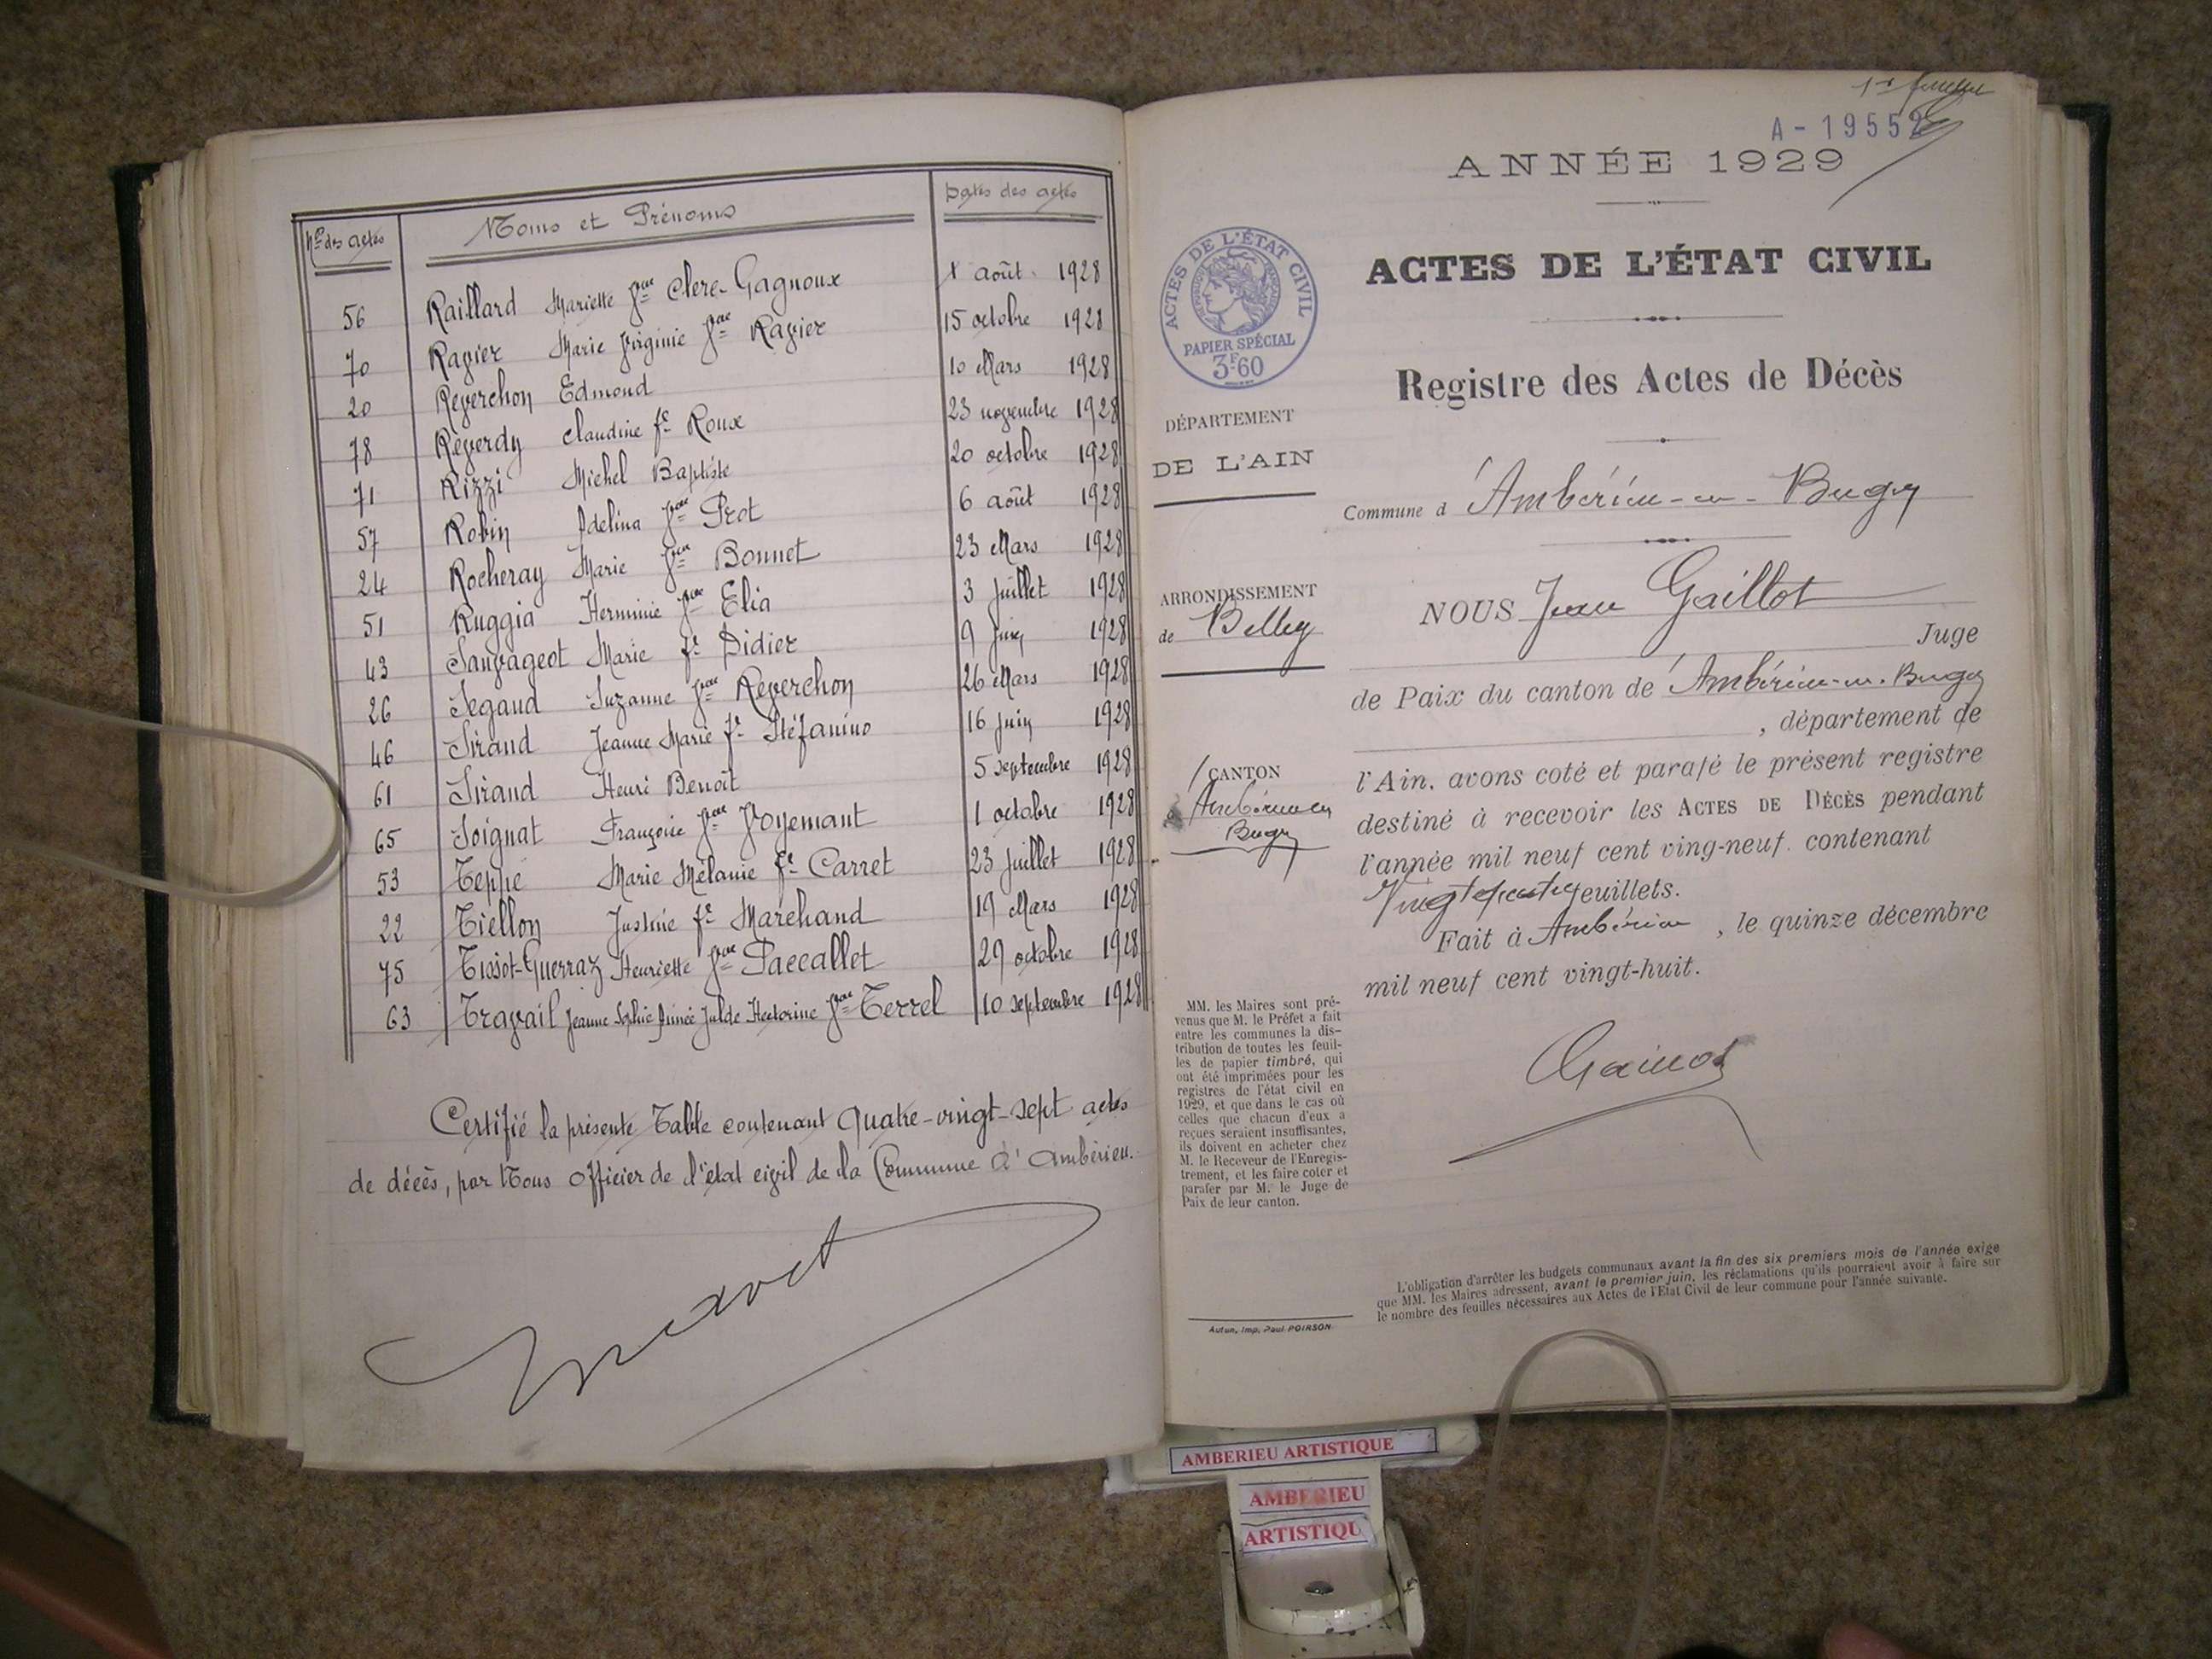 Nos des actes Noms et Prénoms Dates des actes
56 Raillard Mariette Vve Clere-Gagnoux 1 août 1928
70 Ravier Marie Virginie Vve Ravier 15 octobre 1928
20 Reverchon Edmond 10 Mars 1928
78 Reverdy Claudine fe Roux 23 novembre 1928
71 Rizzi Michel Baptiste 20 octobre 1928
57 Robin Adelina Vve Prot 6 août 1928
24 Rocheray Marie Vve Bonnet 23 Mars 1928
51 Ruggia Herminie Vve Elia 3 Juillet 1928
43 Sauvageot Marie fe Didier 9 Juin 1928
26 Segaud Suzanne Vve Reverchon 26 Mars 1928
46 Sirand Jeanne Marie fe Stéfanino 16 Juin 1928
61 Sirand Henri Benoît 5 septembre 1928
65 Soignat Françoise Vve Voyemant 1 octobre 1928
53 Teppe Marie Mélanie fe Carret 23 Juillet 1928
22 Tiellon Justine fe Maréhand 19 Mars 1928
75 Tissot-Guerraz Henriette Vve Paccallet 29 octobre 1928
63 Travail Jeanne Sophie Aimée Hectorine Vve Terrel 10 septembre 1928
Certifié la présente Table contenant Quatre-vingt-sept actes
de décès, par Nous Officier de l'état civil de la Commune d'Ambérieu.
A-19552
ANNÉE 1929
ACTES DE L'ÉTAT CIVIL
PAPIER SPÉCIAL
3F60
ACTES DE L'ÉTAT CIVIL
Registre des Actes de Décès
DÉPARTEMENT
DE L'AIN
Commune d'Ambérieu-en-Bugey
ARRONDISSEMENT
de Belley
NOUS Jean Gaillot
Juge
de Paix du canton de Ambérieu-en-Bugey
, département de
l'Ain, avons coté et parafé le présent registre
destiné à recevoir les ACTES DE DÉCÈS pendant
l'année mil neuf cent ving-neuf, contenant
feuillets.
Fait à Ambérieu, le quinze décembre
mil neuf cent vingt-huit.
CANTON
d'Ambérieu en
Bugey
MM. les Maires sont pré-
venus que M. le Préfet a fait
entre les communes la dis-
tribution de toutes les feuil-
les de papier timbré, qui
ont été imprimées pour les
registres de l'état civil en
1929, et que dans le cas où
celles que chacun d'eux a
reçues seraient insuffisantes,
ils doivent en acheter chez
M. le Receveur de l'Enregis-
trement, et les faire coter et
parafer par M. le Juge de
Paix de leur canton.
L'obligation d'arrêter les budgets communaux avant la fin des six premiers mois de l'année exige
que MM. les Maires adressent, avant le premier juin, les réclamations qu'ils pourraient avoir à faire sur
le nombre des feuilles nécessaires aux Actes de l'Etat Civil de leur commune pour l'année suivante.
Autun, Imp. Paul POIRSON
AMBERIEU ARTISTIQUE
AMBERIEU
ARTISTIQU